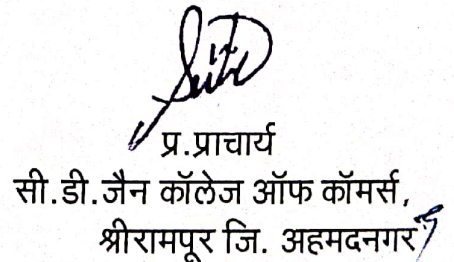 प्र.प्राचार्य
सी.डी.जैन कॉलेज ऑफ कॉमर्स,
श्रीरामपूर जि. अहमदनगर